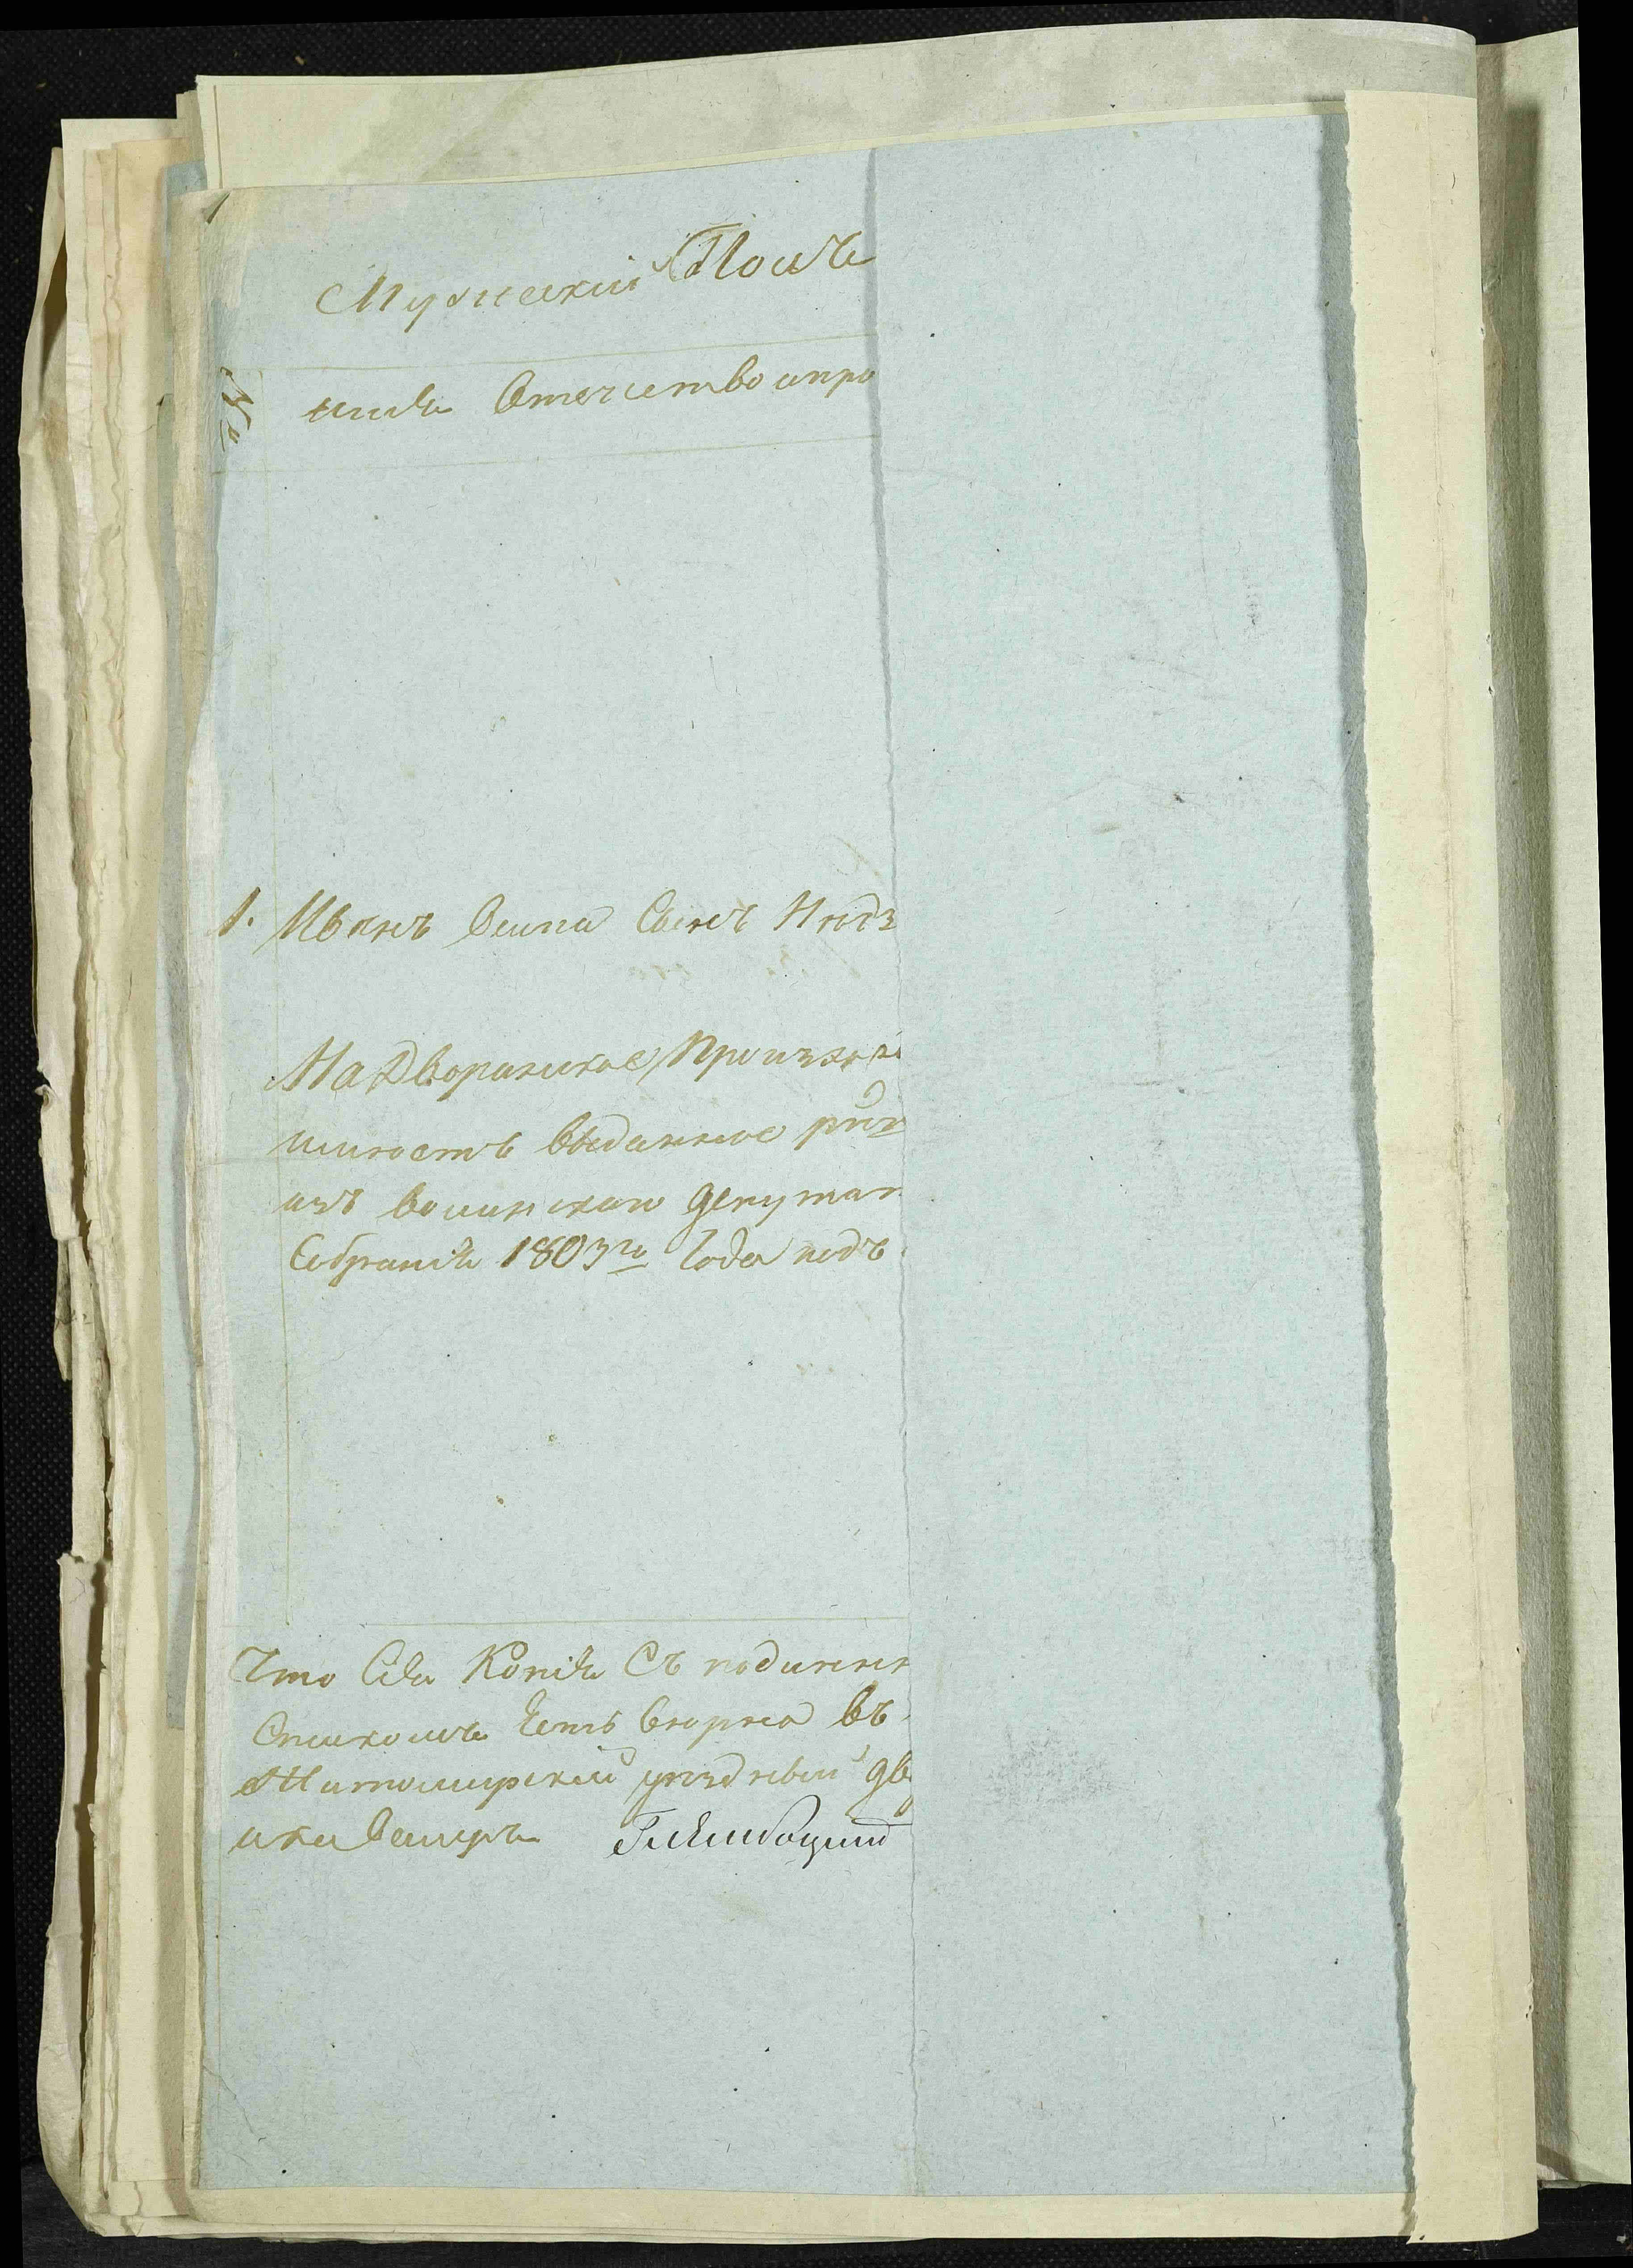 Мужеский Полъ
№
имя Отечество и про
1. Иванъ Осипа Сынъ
На Дворянское Происхож
имѣетъ выданное
изъ волынскаго депутат
Собранія 1803го Года подъ
Что Сія Копія Съ подлинн
Спискомъ Есть вѣрна въ
Житомирскій уѣздный дв